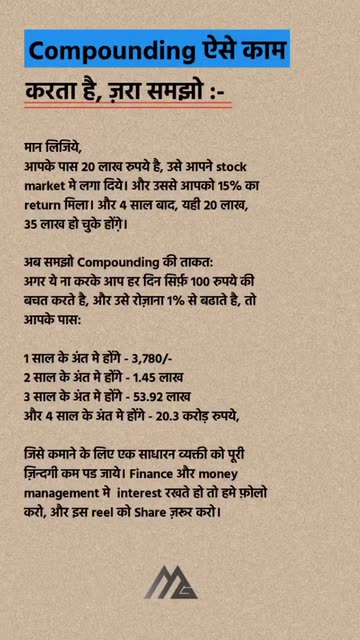 Compounding ऐसे काम
करता है, ज़रा समझो :-
मान लिजिये,
आपके पास 20 लाख रुपये है, उसे आपने stock
market मे लगा दिये। और उससे आपको 15% का
return मिला। और 4 साल बाद, यही 20 लाख,
35 लाख हो चुके होंगे़।
अब समझो Compounding की ताकत:
अगर ये ना करके आप हर दिन सिर्फ़ 100 रुपये की
बचत करते है, और उसे रोज़ाना 1% से बढाते है, तो
आपके पास:
1 साल के अंत मे होंगे - 3,780/-
2 साल के अंत मे होंगे - 1.45 लाख
3 साल के अंत मे होंगे - 53.92 लाख
और 4 साल के अंत मे होंगे - 20.3 करोड़ रुपये,
जिसे कमाने के लिए एक साधारन व्यक्ती को पूरी
ज़िन्दगी कम पड जाये। Finance और money
management मे interest रखते हो तो हमे फ़ोलो
करो, और इस reel को Share ज़रूर करो।